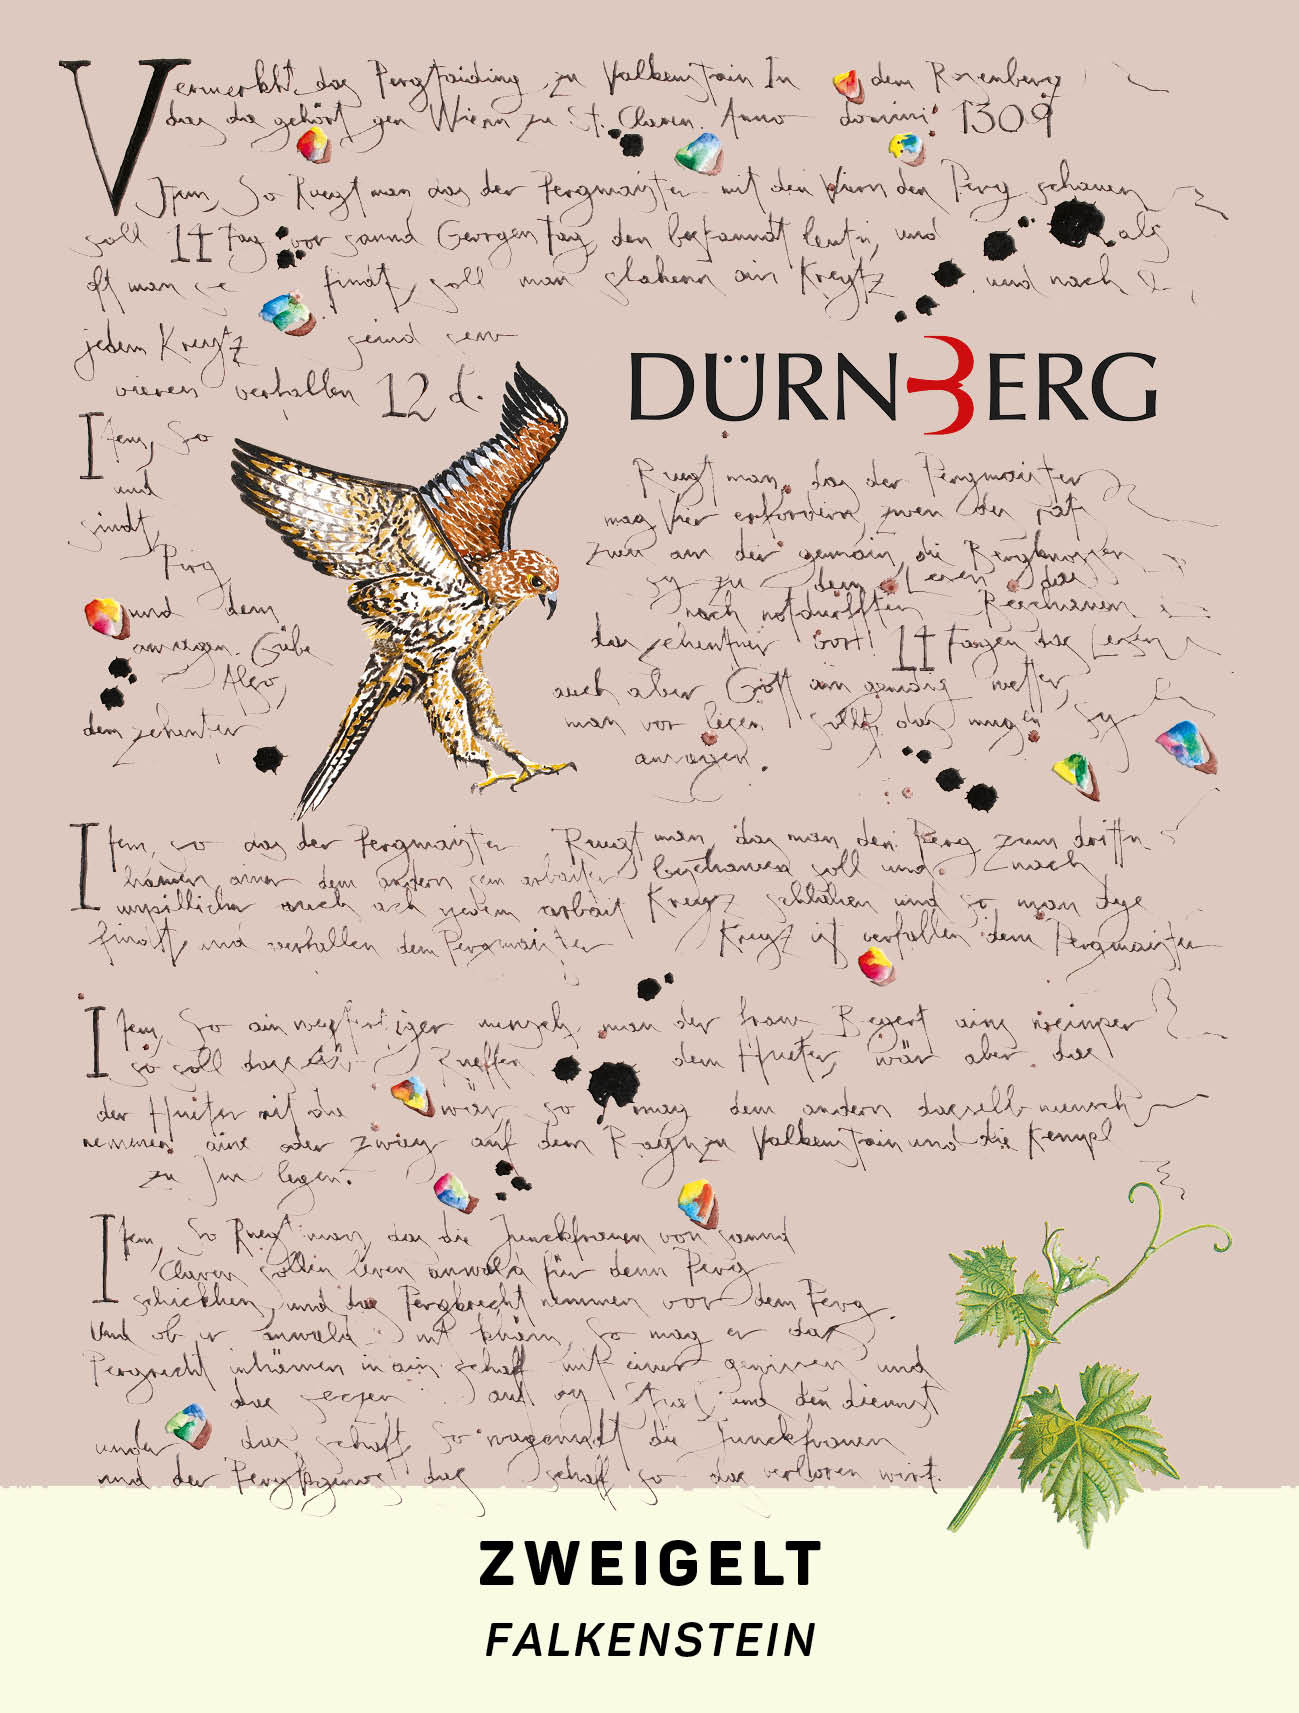 Vermerkht das Pergtaiding zu Valkenstain In dem Rosenberg
das da gehört gen Wienn zu St. Claren. Anno domini 1309
Item, So Ruegt man das der Pergmaister mit den Viern den Perg schauen
soll 14 Tag vor sannd Georgen Tag, den bekanndt leutn, und als
oft man se findt, soll man slahenn ain Kreytz und nach
jedem Kreytz seind
vieren verhallen 12 d.
DÜRNBERG
Item, So
und
findt,
Pirg
und dem
anzaigen. Gübe
Also,
dem zehenter
Ruegt man, das der Pergmaister
mag Vier erfordern, zwen des rats
zwen an der gemain, die Bergknossen
sy zu dem Lesen das
nach notdurfften Beschauen
das zehentner vort! 14 Tagen das Lesen
auch aber Gott ain genaig wetter,
man vor legen sollt, das mugen sy
anzaigen.
Item, so das der Pergmaister Ruegt man, das man den Perg zum drittn
hamen ainer dem andern sein arbaiter beschauen soll und nach
auch ach yedem arbait Kreuz schlahen und so man dye
findt, und verhallen dem Pergmaister Kreuz ist verfallen dem Pergmaister
Item, So ain wegfertiger mensch, man der fraw Begert ains weinper
so soll das Rueffen dem Hueter, wär aber das
der Hueter nit da wär, so mag dem andern dasselb mensch
nemmen aine oder zway auf dem Rayn zu Valkenstain und die Kempl
zu Im legen.
Item, So Ruegt man, das die Junckfrauen von sannd
Claren sollin iren anwald für denn Perg
schickhen, und das Pergkrecht nemmen vor dem Perg.
Und ob ir anwald nit kham, So mag er das
Pergrecht in ain schaff mit einer gewissen und
das auf und den diennst
under das schaft, So die Junckfrauen
und der Pergkgenos das schaff so das verloren wirt.
ZWEIGELT
FALKENSTEIN